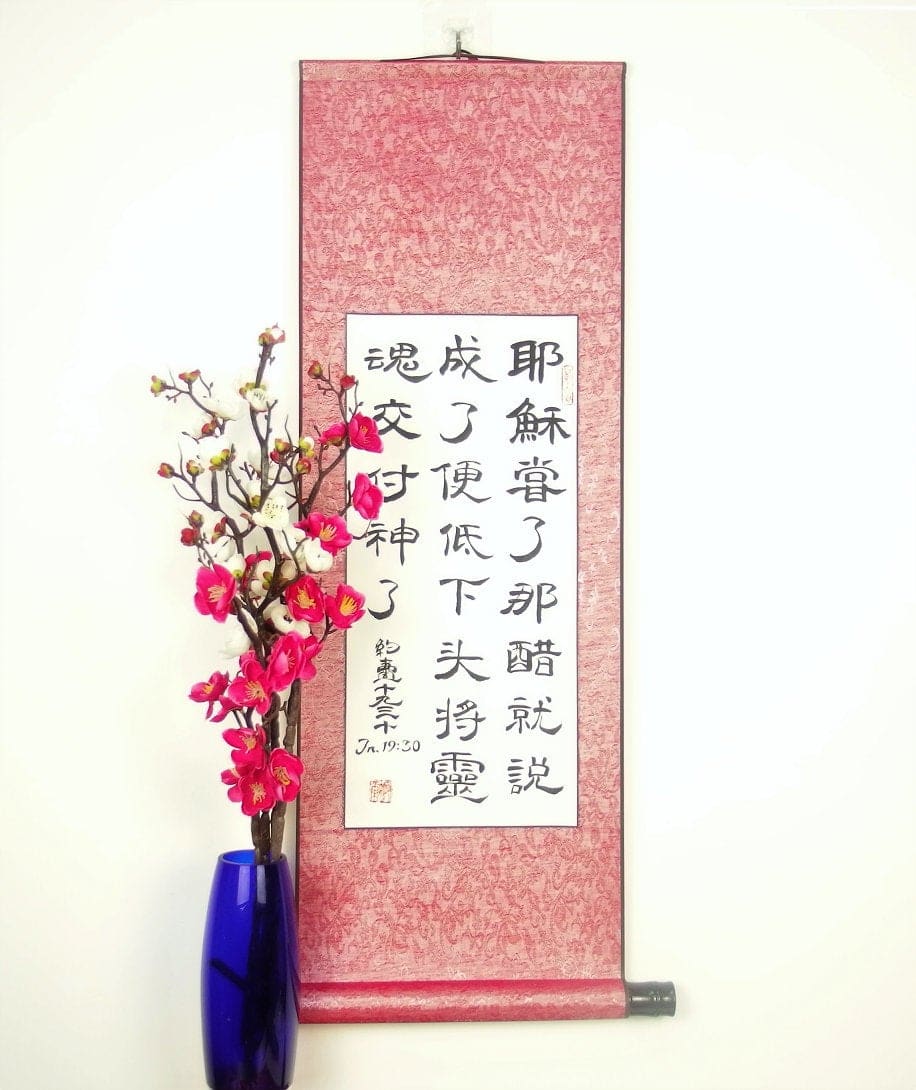 耶穌嘗了那醋就説
成了便低下头将靈
魂交付神了
約壹十九三十
Jn. 19:30